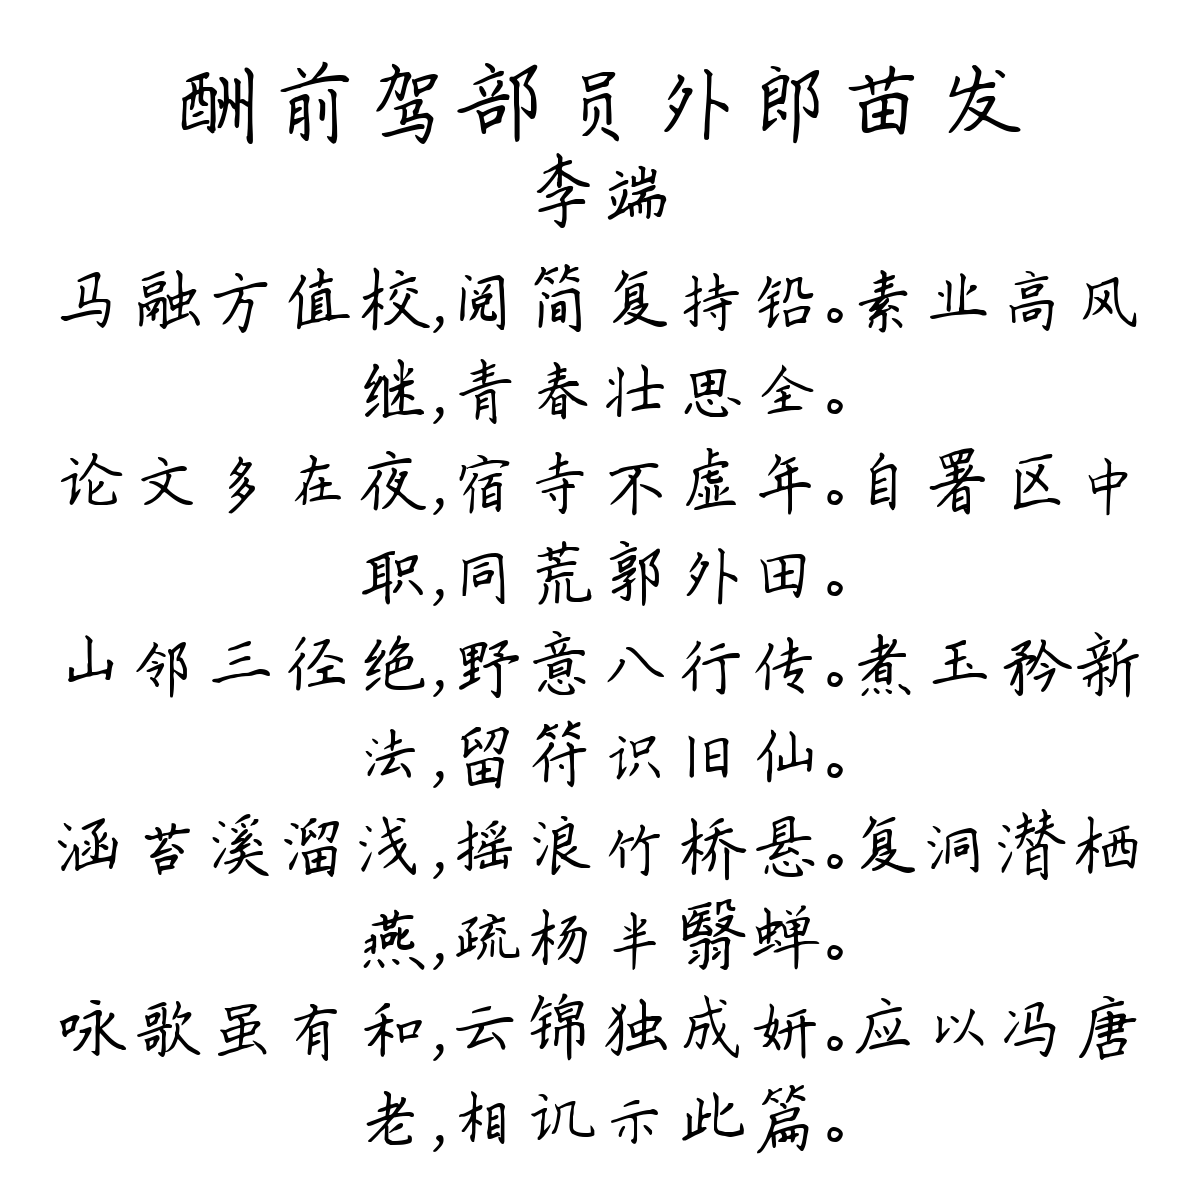 酬前驾部员外郎苗发
李端
马融方值校,阅简复持铅。素业高风
继,青春壮思全。
论文多在夜,宿寺不虚年。自署区中
职,同荒郭外田。
山邻三径绝,野意八行传。煮玉矜新
法,留符识旧仙。
涵苔溪溜浅,摇浪竹桥悬。复洞潜栖
燕,疏杨半翳蝉。
咏歌虽有和,云锦独成妍。应以冯唐
老,相讥示此篇。